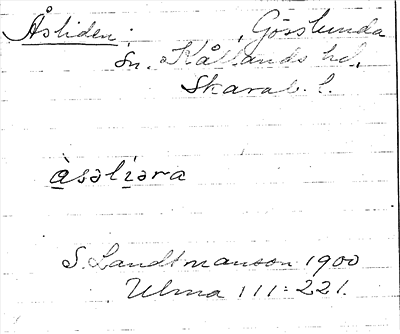 Åsliden. , Görslunda
Sn. Kållands hd.
Skarab. l.
àsəliəra
S. Landtmanson 1900
Ulma 111:221.